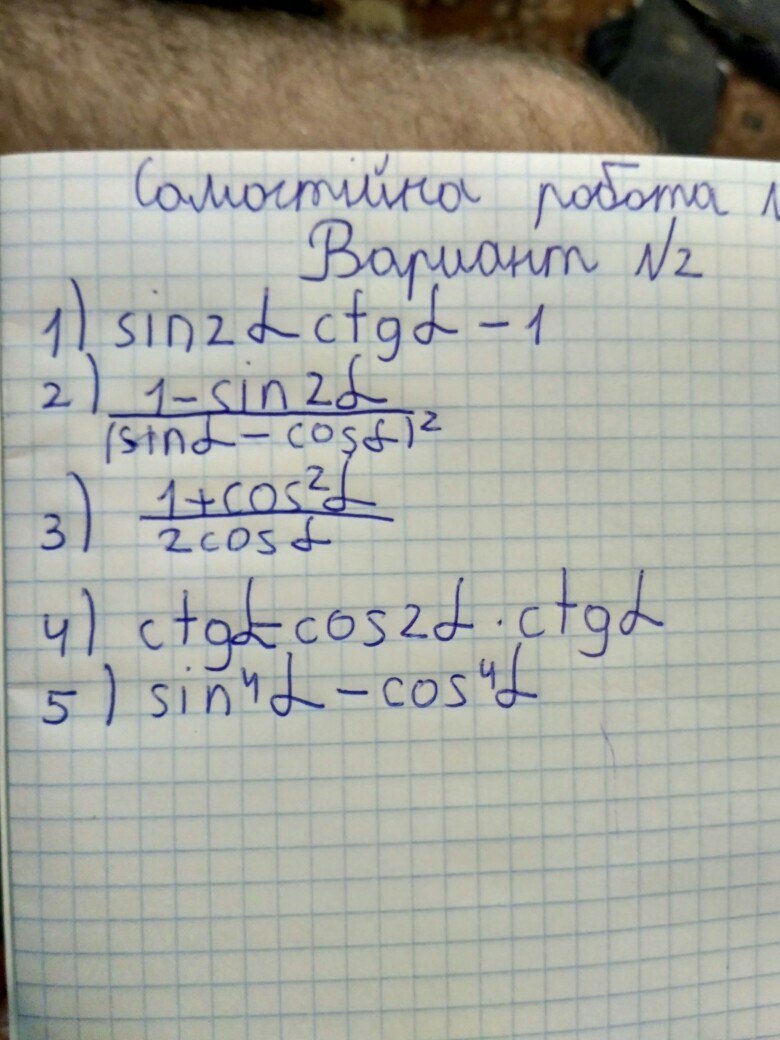 Самостійна робота
Вариант №2
1) sin2α ctgα - 1
2) 1-sin2α
(sinα - cosα)²
3) 1+cos²α
2cosα
4) ctgα-cos2α·ctgα
5) sin⁴α - cos⁴α